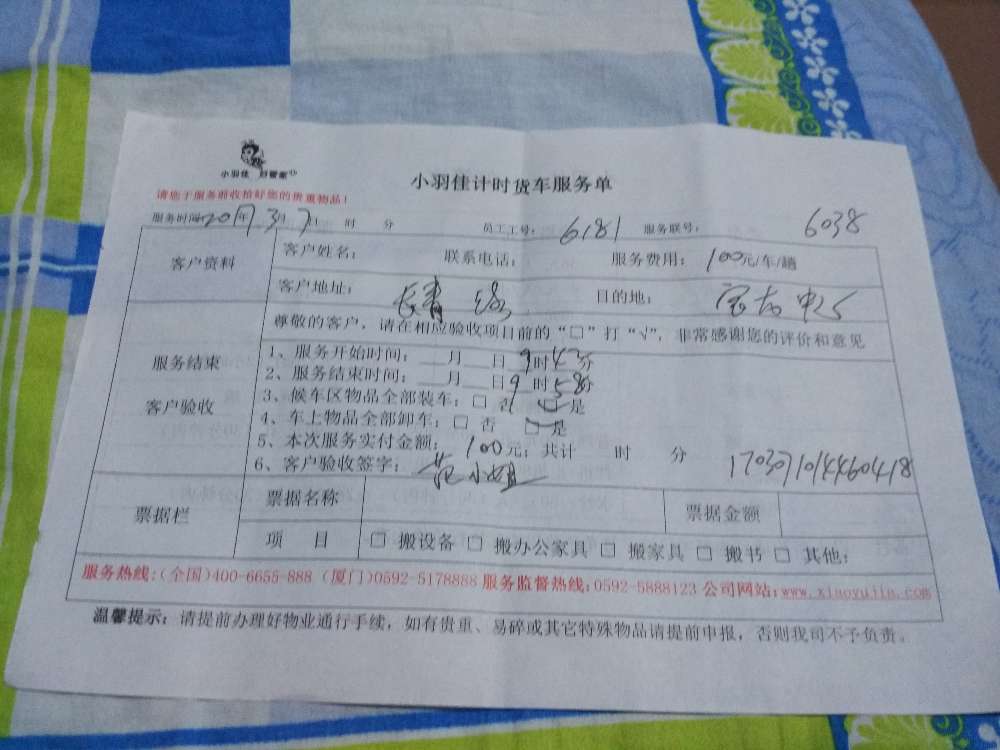 小羽佳 好管家
小羽佳计时货车服务单
请您于服务前收拾好您的贵重物品！
服务时间：2017年3月7日 时 分 员工工号：6181 服务联号：6038
客户资料
客户姓名： 联系电话： 服务费用：100元/车/趟
客户地址： 长青 目的地：
尊敬的客户，请在相应验收项目前的“□”打“√”，非常感谢您的评价和意见
服务结束
客户验收
1、服务开始时间：＿＿月＿＿日9时43分
2、服务结束时间：＿＿月＿＿日9时58分
3、候车区物品全部装车：□ 否 □是
4、车上物品全部卸车：□ 否 □是
5、本次服务实付金额：100元；共计 时 分
6、客户验收签字：范小姐 1703071014460418
票据栏
票据名称 票据金额
项 目 □ 搬设备 □ 搬办公家具 □ 搬家具 □ 搬书 □ 其他：
服务热线：(全国)400-6655-888 (厦门)0592-5178888 服务监督热线：0592-5888123 公司网站：www.xiaoyujia.com
温馨提示：请提前办理好物业通行手续，如有贵重、易碎或其它特殊物品请提前申报，否则我司不予负责。